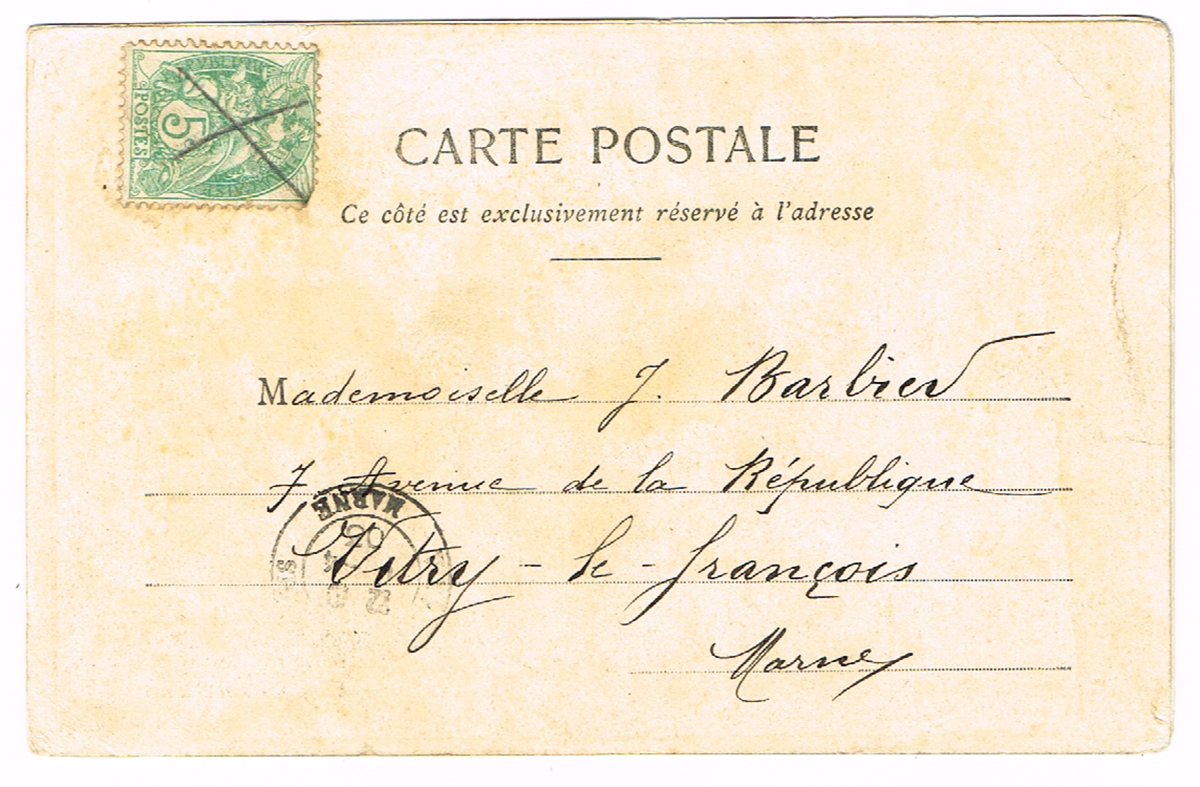 POSTES
5
CARTE POSTALE
Ce côté est exclusivement réservé à l'adresse
Mademoiselle J. Barbier
7, Avenue de la République
Vitry-le-François
Marne
MARNE